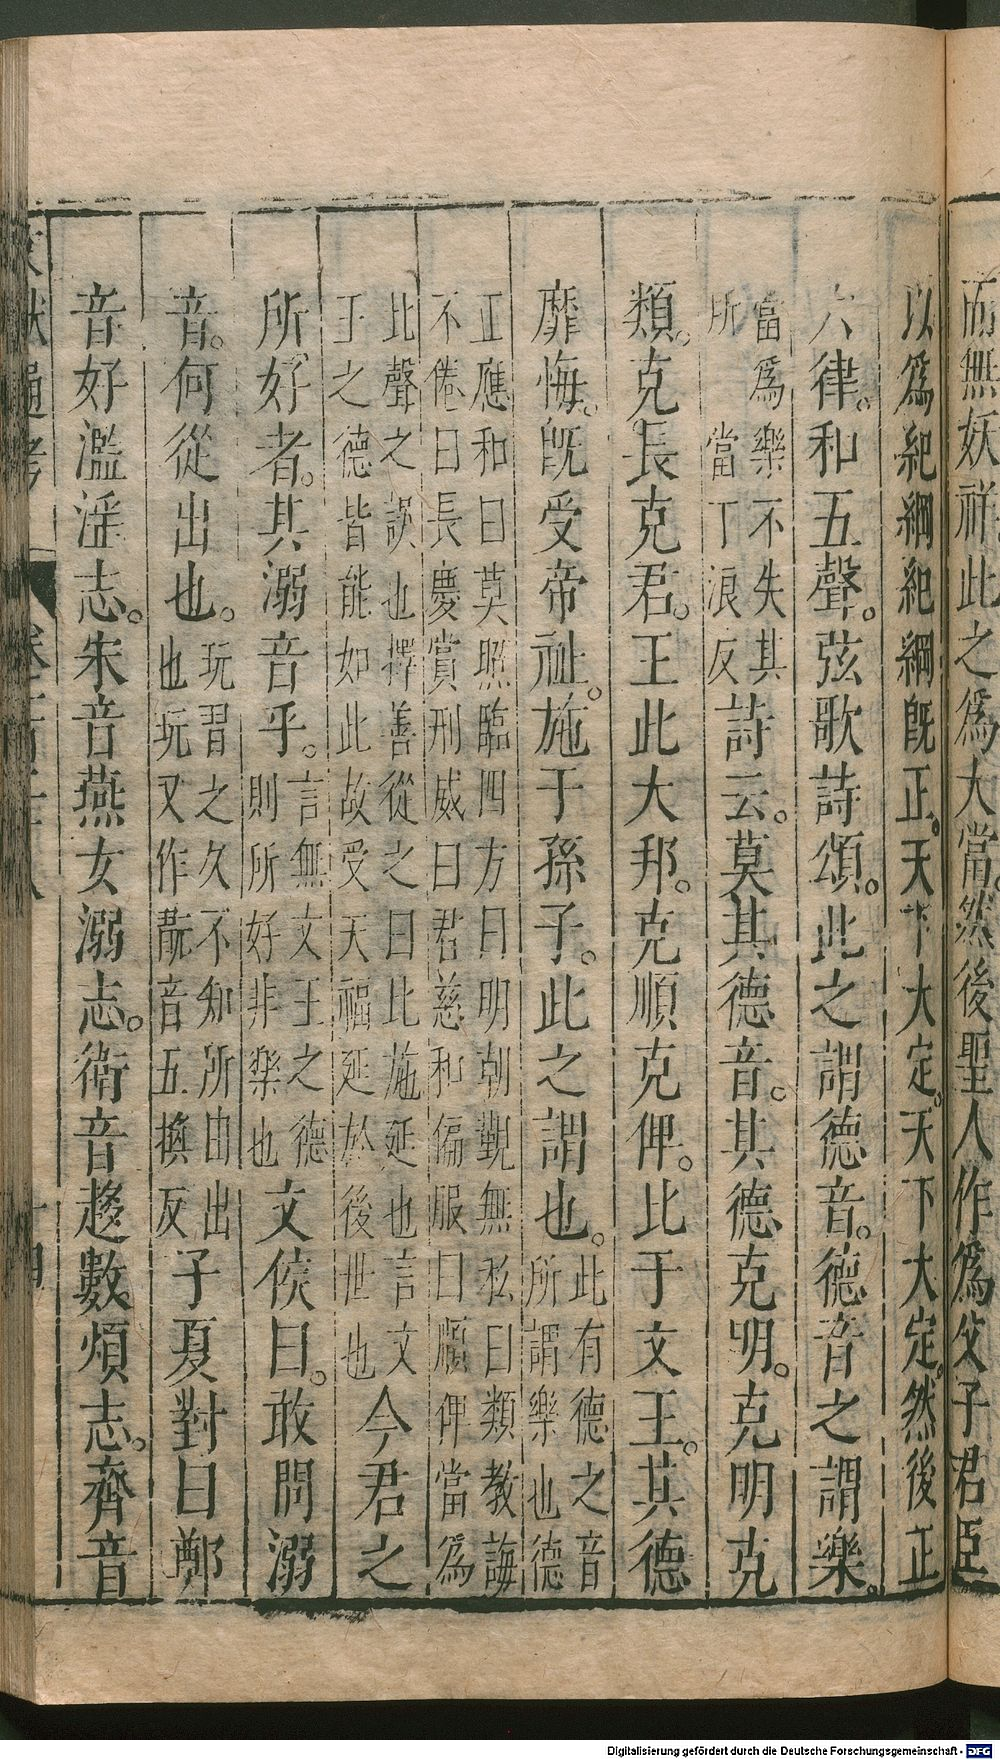 而無妖祥此之爲大當。然後聖人作爲父子君臣
以爲紀綱紀綱旣正。天下大定。天下大定。然後正
六律。和五聲。弦歌詩頌。此之謂德音。德音之謂樂。
當爲樂不失其
所 當丁浪反
詩云。莫其德音。其德克明。克明克
類。克長克君。王此大邦。克順克俾。比于文王。其德
靡悔。旣受帝祉。施于孫子。此之謂也。
此有德之音
所謂樂也德
正應和曰莫照臨四方曰明勤觀無私曰類教誨
不倦曰長慶賞刑威曰君慈和偏服曰順俾當爲
比聲之誤也擇善從之曰比施延也言文
王之德皆能如此故受天福延於後世也
今君之
所好者。其溺音乎。
言無文王之德
則所好非樂也
文侯曰。敢問溺
音。何從出也。
玩習之久不知所由出
也玩又作翫音五換反
子夏對曰鄭
音好濫淫志。宋音燕女溺志。衛音趨數煩志。齊音
Digitalisierung gefördert durch die Deutsche Forschungsgemeinschaft - DFG